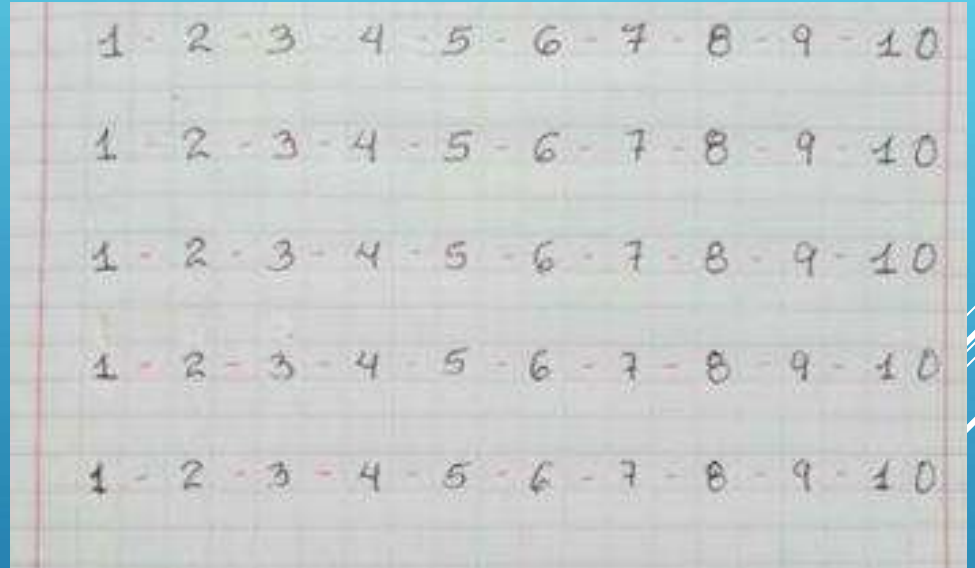 1 - 2 - 3 - 4 - 5 - 6 - 7 - 8 - 9 - 10
1 - 2 - 3 - 4 - 5 - 6 - 7 - 8 - 9 - 10
1 - 2 - 3 - 4 - 5 - 6 - 7 - 8 - 9 - 10
1 - 2 - 3 - 4 - 5 - 6 - 7 - 8 - 9 - 10
1 - 2 - 3 - 4 - 5 - 6 - 7 - 8 - 9 - 10